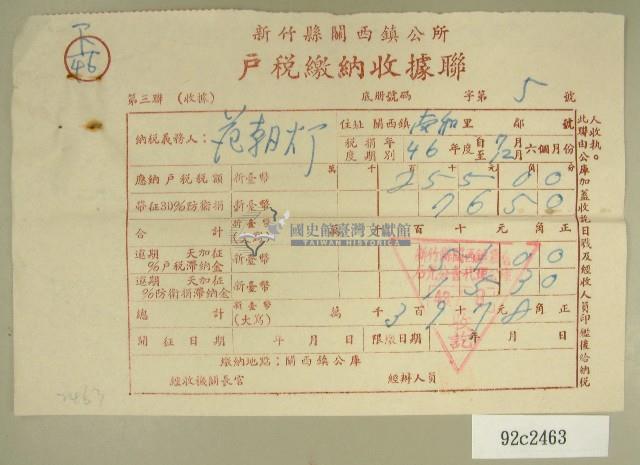 下
45
新竹縣關西鎮公所
戶稅繳納收據聯
第三聯 (收據) 底册號碼 字第 5 號
納稅義務人: 范朝灯 住址 關西鎮 南和 里 鄰 號
稅捐年度期別 46 年度 自7月至12月 六個月份
萬 千 百 十 元 角 分
應納戶稅稅額 新臺幣 2 5 5 0 0
帶征30%防衛捐 新臺幣 7 6 5 0
合計 新臺幣 萬 千 百 十 元 角 正
逾期 天加征 %戶稅滯納金 新臺幣 5 1 0 0
逾期 天加征 %防衛捐滯納金 新臺幣 1 5 3 0
總計 新臺幣 (大寫) 萬 千 3 百 9 十 7 元 8 角 正
開征日期 年 月 日 限繳日期 年 月 日
繳納地點:關西鎮公庫
經收機關長官 經辦人員
此聯由公庫加蓋收訖日戳及經收人員印鑑後給納稅人收執。
國史館臺灣文獻館
TAIWAN HISTORICA
92c2463